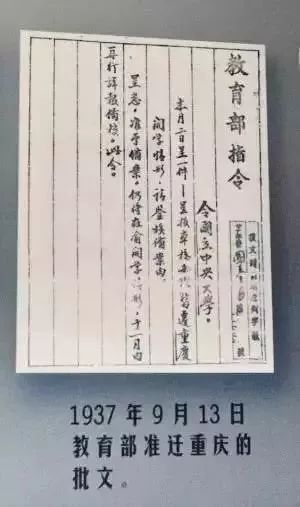 教育部指令
令國立中央大學。
本月二日呈一件—呈報本校
遷重慶
開學情形，請鑒核備案由。
呈悉。准予備案。仍將在渝開學情形，于一月內
再行詳報備核。此令。
1937 年 9 月 13 日
教育部准迁重庆的
批文。